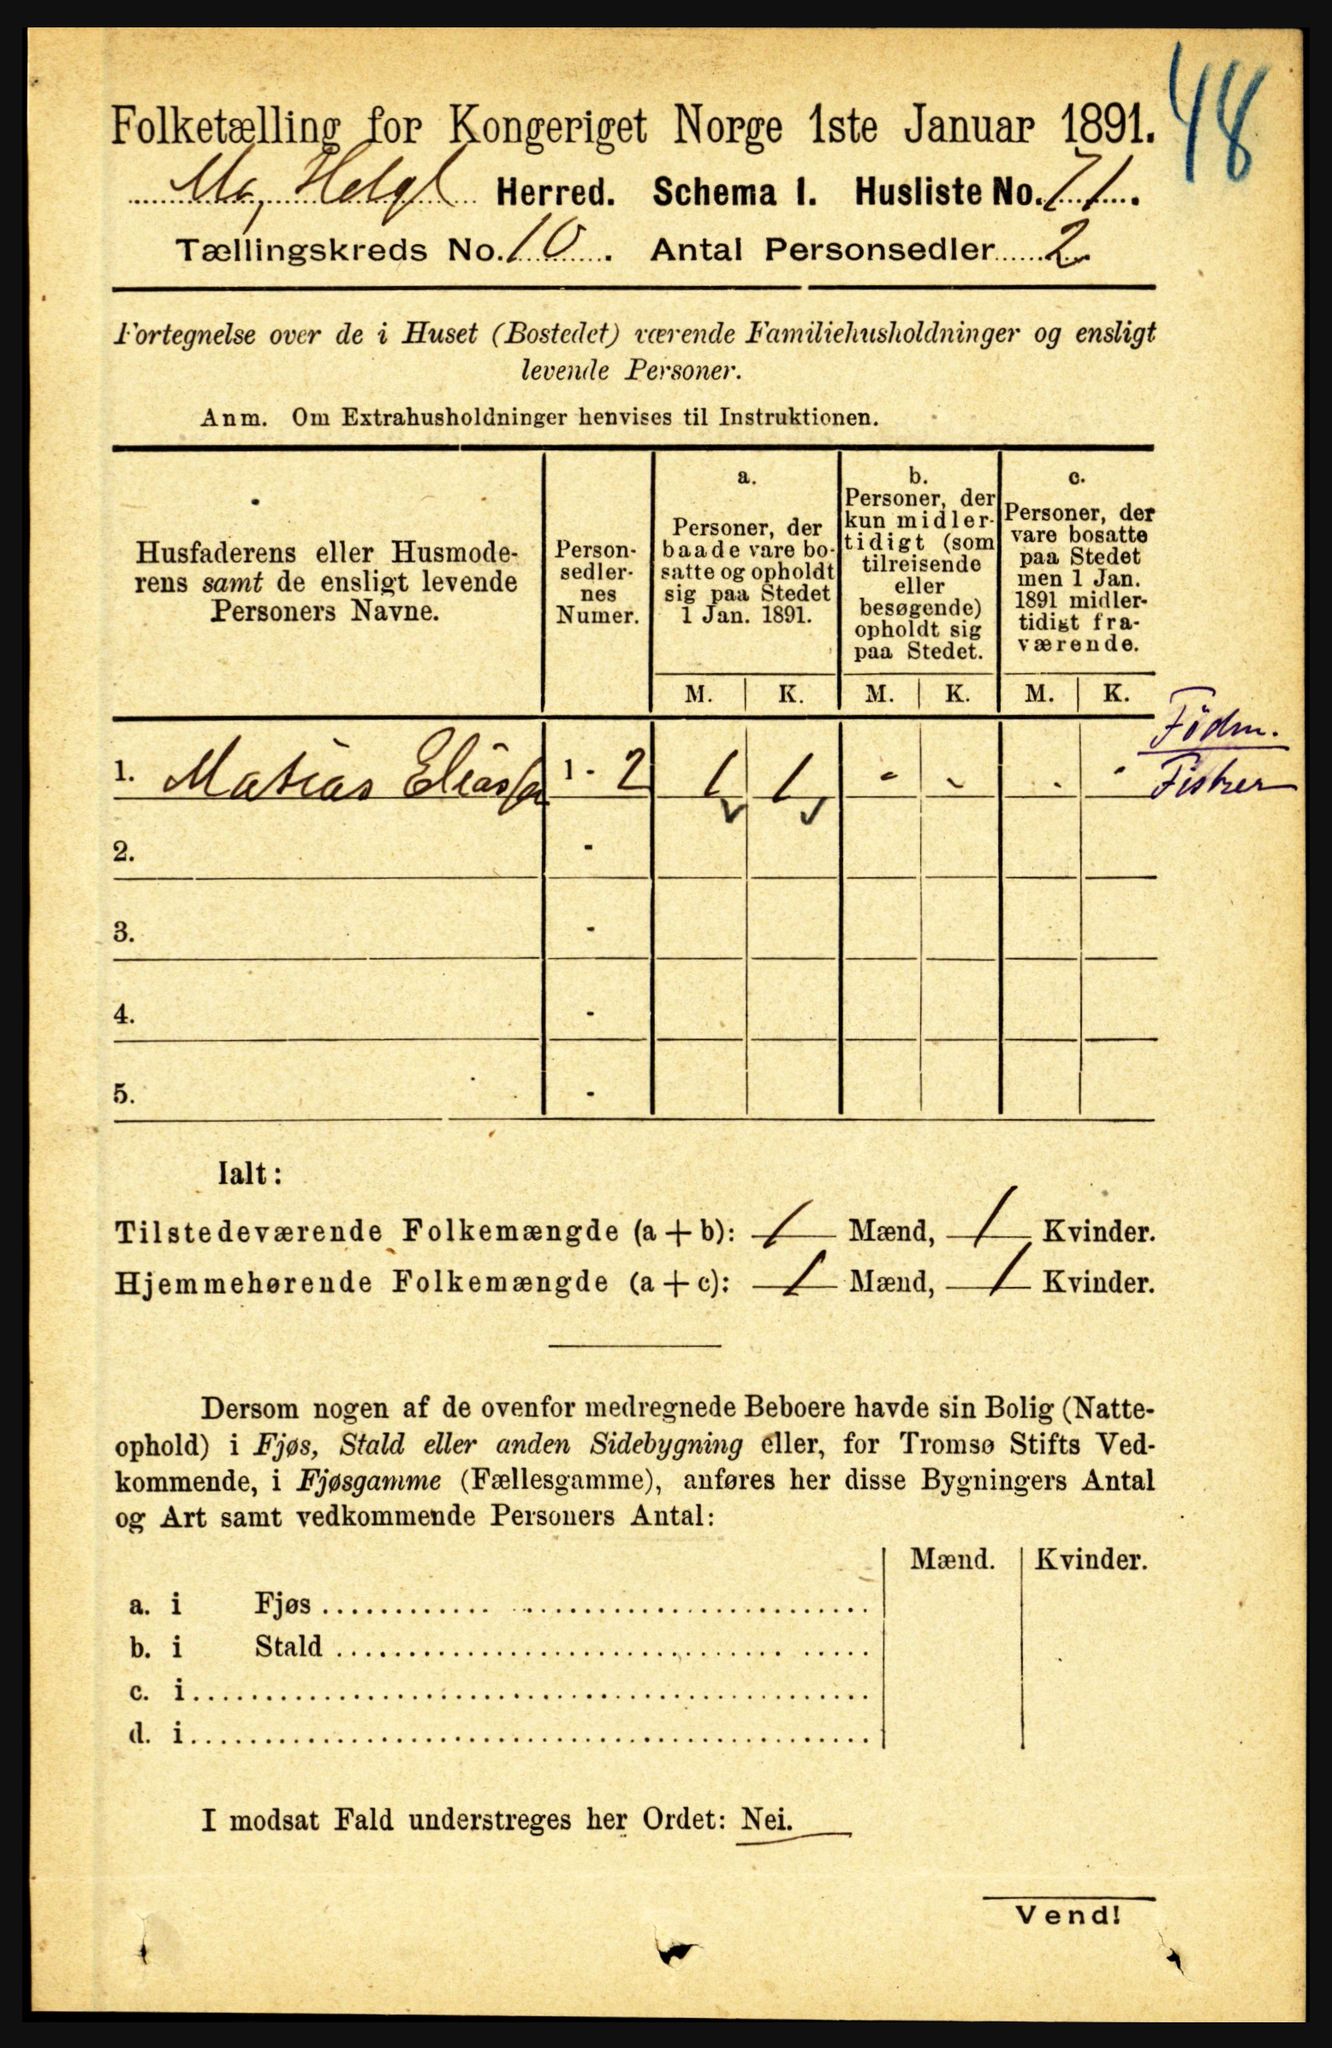 48
Folketælling for Kongeriget Norge 1ste Januar 1891.
Mo, Helgl Herred. Schema 1. Husliste No. 71.
Tællingskreds No. 10. Antal Personsedler 2
Fortegnelse over de i Huset (Bostedet) værende Familiehusholdninger og ensligt
levende Personer.
Anm. Om Extrahusholdninger henvises til Instruktionen.
Husfaderens eller Husmode-
rens samt de ensligt levende
Personers Navne.
Person-
sedler-
nes
Numer.
a.
Personer, der
baade vare bo-
satte og opholdt
sig paa Stedet
1 Jan. 1891.
b.
Personer, der
kun midler-
tidigt (som
tilreisende
eller
besøgende)
opholdt sig
paa Stedet.
c.
Personer, der
vare bosatte
paa Stedet
men 1 Jan.
1891 midler-
tidigt fra-
værende.
M. K. M. K. M. K.
Födm.
Fisker
1. Matias Eliass 1 - 2 1 1 - - . -
2. -
3. -
4. -
5. -
Ialt:
Tilstedeværende Folkemængde (a + b): 1 Mænd, 1 Kvinder.
Hjemmehørende Folkemængde (a + c): 1 Mænd, 1 Kvinder.
Dersom nogen af de ovenfor medregnede Beboere havde sin Bolig (Natte-
ophold) i Fjøs, Stald eller anden Sidebygning eller, for Tromsø Stifts Ved-
kommende, i Fjøsgamme (Fællesgamme), anføres her disse Bygningers Antal
og Art samt vedkommende Personers Antal:
Mænd. Kvinder.
a. i Fjøs
b. i Stald
c. i
d. i
I modsat Fald understreges her Ordet: Nei.
Vend!